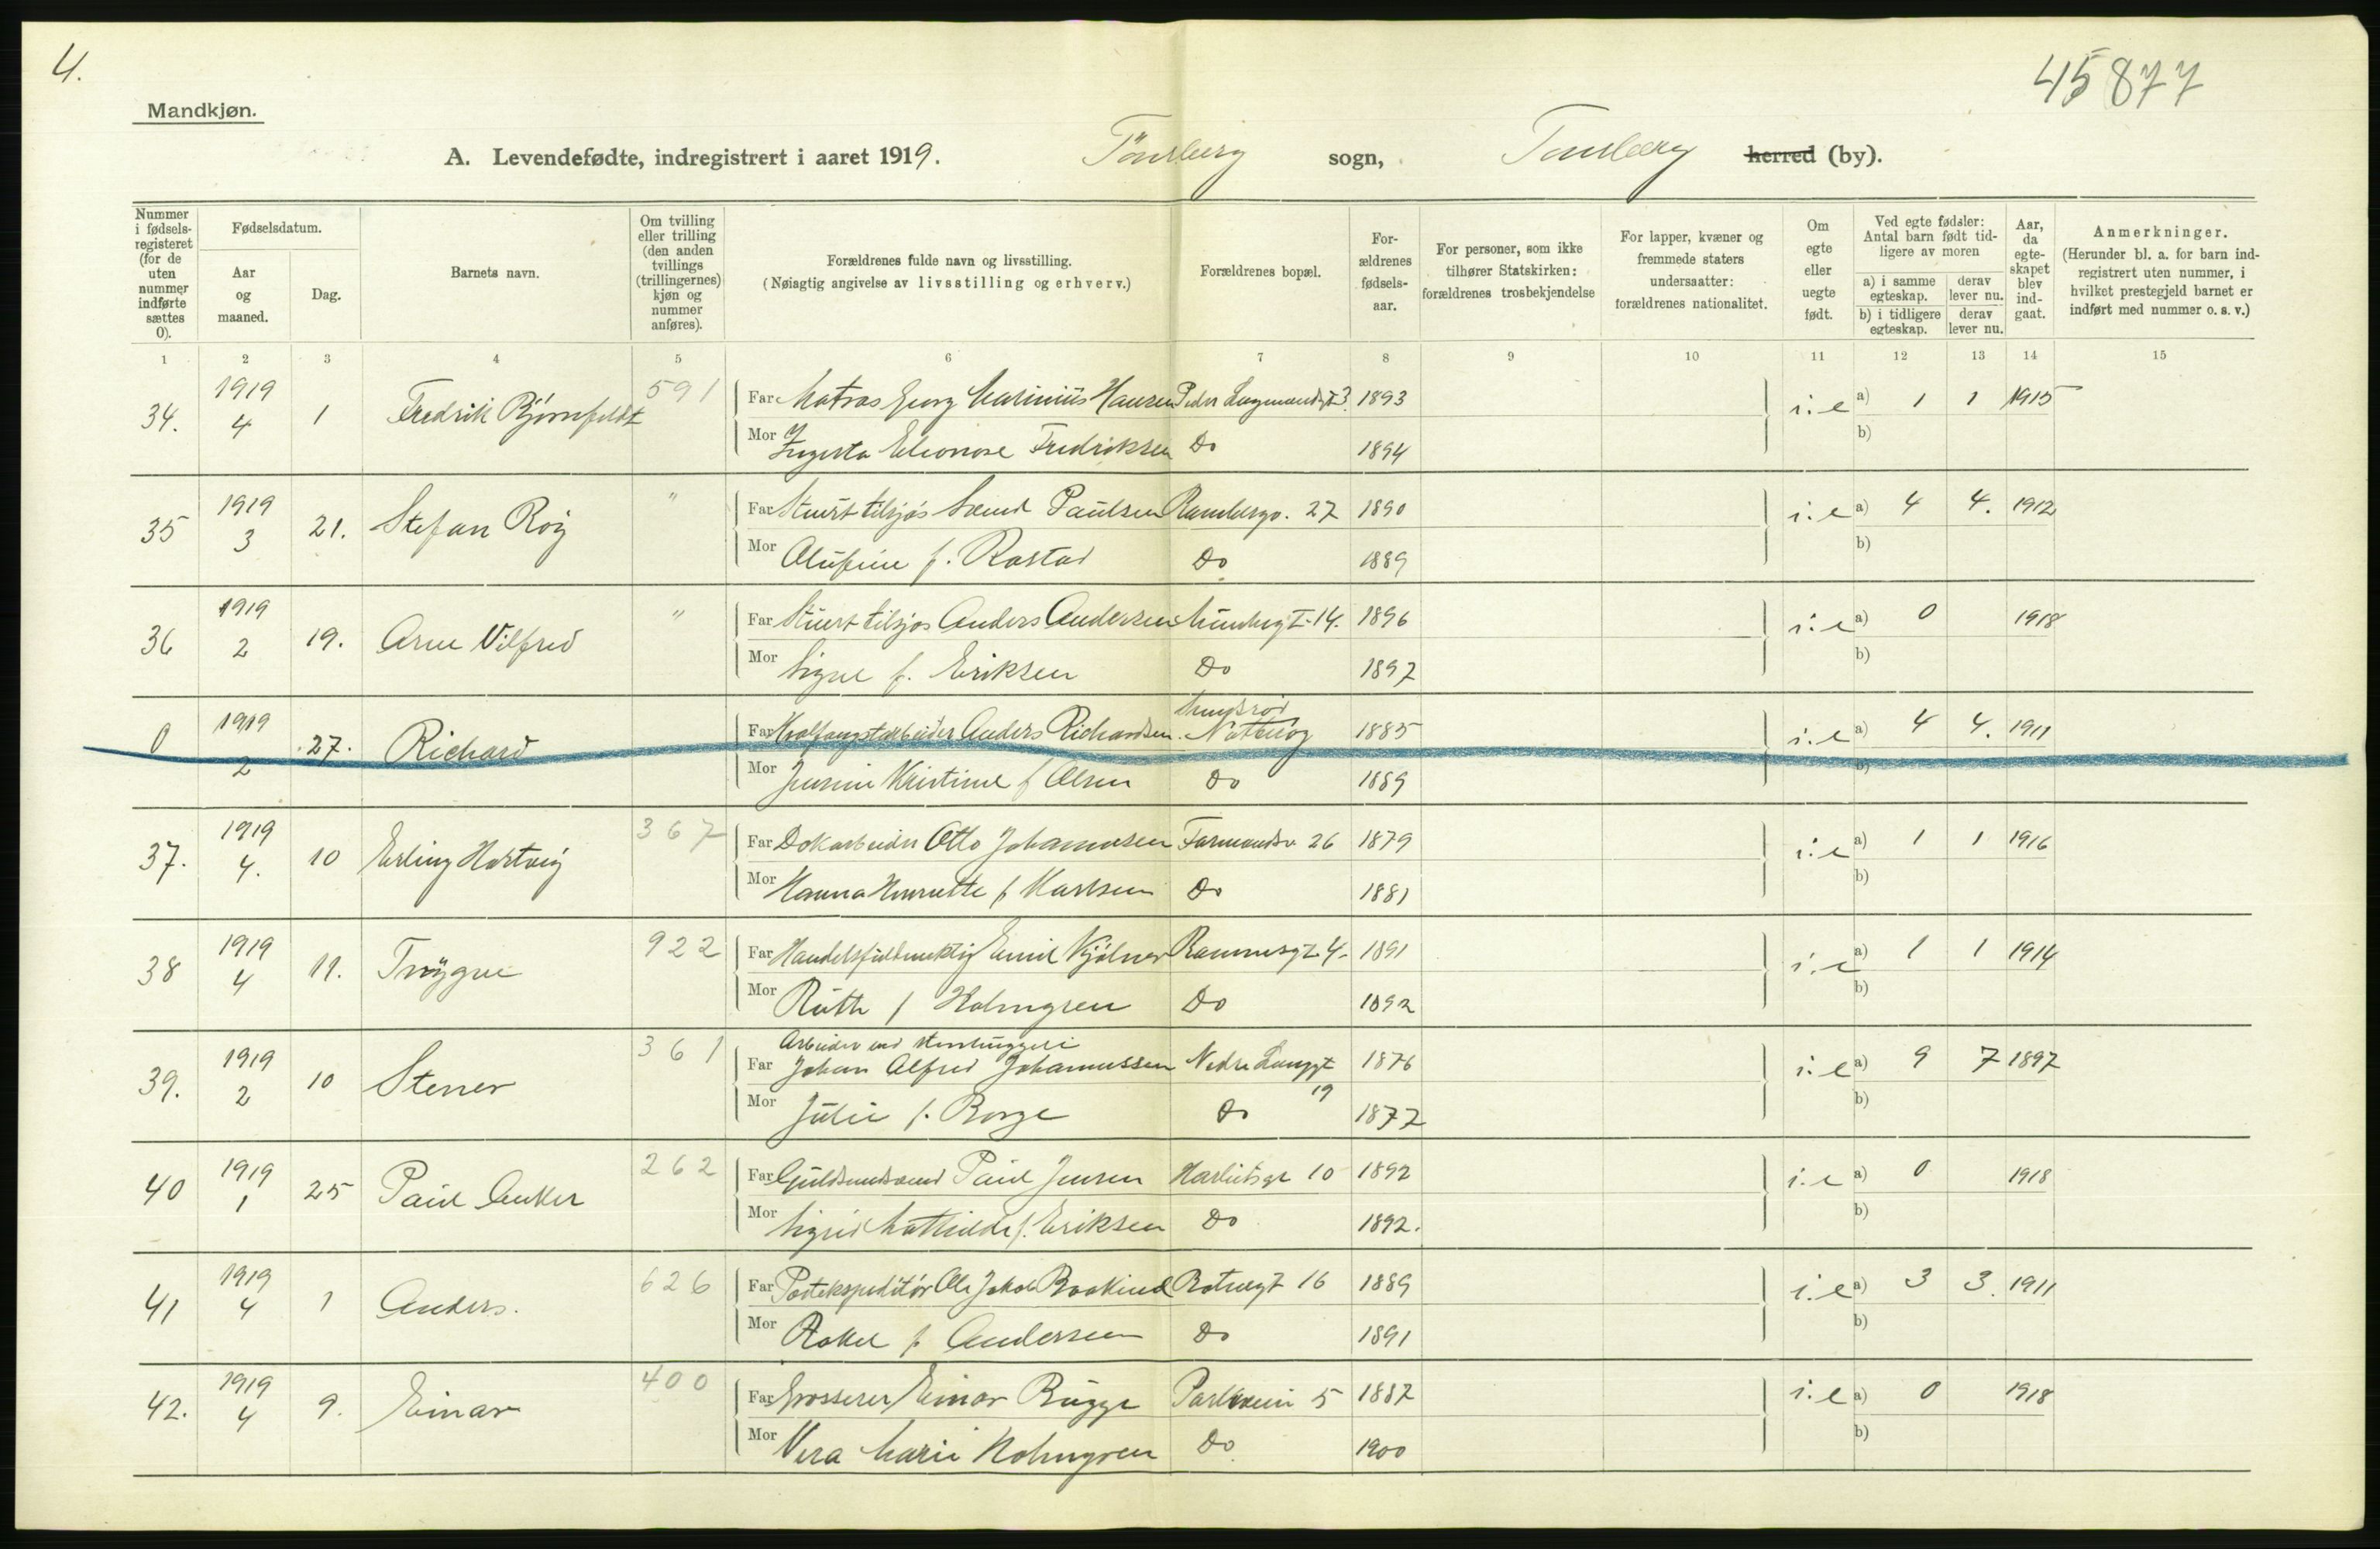 4.
45877
Mandkjøn.
A. Levendefødte, indregistrert i aaret 1919. Tönsberg sogn, Tønsberg herred (by).
Nummer i fødsels-registeret (for de uten nummer indførte sættes 0).
Fødselsdatum.
Aar og maaned.
Dag.
Barnets navn.
Om tvilling eller trilling (den anden tvillings (trillingernes) kjøn og nummer anføres).
Forældrenes fulde navn og livsstilling.
(Nøiagtig angivelse av livsstilling og erhverv.)
Forældrenes bopæl.
For-ældrenes fødsels-aar.
For personer, som ikke tilhører Statskirken: forældrenes trosbekjendelse
For lapper, kvæner og fremmede staters undersaatter: forældrenes nationalitet.
Om egte eller uegte født.
Ved egte fødsler: Antal barn født tid-ligere av moren
a) i samme egteskap.
derav lever nu.
b) i tidligere egteskap.
derav lever nu.
Aar, da egte-skapet blev ind-gaat.
Anmerkninger.
(Herunder bl. a. for barn ind-registrert uten nummer, i hvilket prestegjeld barnet er indført med nummer o. s. v.)
1 2 3 4 5 6 7 8 9 10 11 12 13 14 15
34. 1919 4 1 Fredrik Bjørnfeldt 591 Far Matros Georg Marinius Hansen 1893 i:e a) 1 1 1915
Mor Ingerta Eleonore Fredriksen Do 1894 b)
35 1919 3 21. Stefan Roy " Far Stuert tilsjøs Paulsen 27 1890 i:e a) 4 4. 1912
Mor Olufine f. Rastad Do 1889 b)
36 1919 2 19. Arne Vilfred " Far Stuert tilsjøs Anders Andersen I-14. 1896 i:e a) 0 1918
Mor Signe f. Eriksen Do 1897 b)
0 1919 2 27. Richard Far Hvalfangstarbeider Anders Richardsen Nøtterøy 1885 i:e a) 4 4. 1911
Mor Kristine f Olsen Do 1889 b)
37. 1919 4. 10 Erling Hartvig 367 Far Dokarbeider Otto Johannesen Farmandsv 26 1879 i:e a) 1 1 1916
Mor Hanna Henriette f Karlsen Do 1881 b)
38 1919 4 11. Trÿgve 922 Far Handelsfuldmektig Emil Kjölner 4. 1891 i:e a) 1 1 1914
Mor Ruth f Holmgren Do 1892 b)
39. 1919 2 10 Stener 361 Arbeider ved stenhuggeri
Far Johan Alfred Johannessen Nedre Langgt 19 1876 i:e a) 9 7 1897
Mor Julie f. Borge Do 1877 b)
40 1919 1 25 Paul Anker 262 Far Guldsmedsvend Paul Jensen 10 1892 i:e a) 0 1918
Mor Sigrid Mathilde f. Eriksen Do 1892. b)
41 1919 4 1 Anders. 626 Far Postekspeditör Ole Jakob 16 1889 i:e a) 3 3. 1911
Mor Rakel f Andersen Do 1891 b)
42. 1919 4 9. Einar 400 Far Grosserer Einar Bugge Parkveien 5 1887 i:e a) 0 1918
Mor Vera Marie Holmgren Do 1900 b)